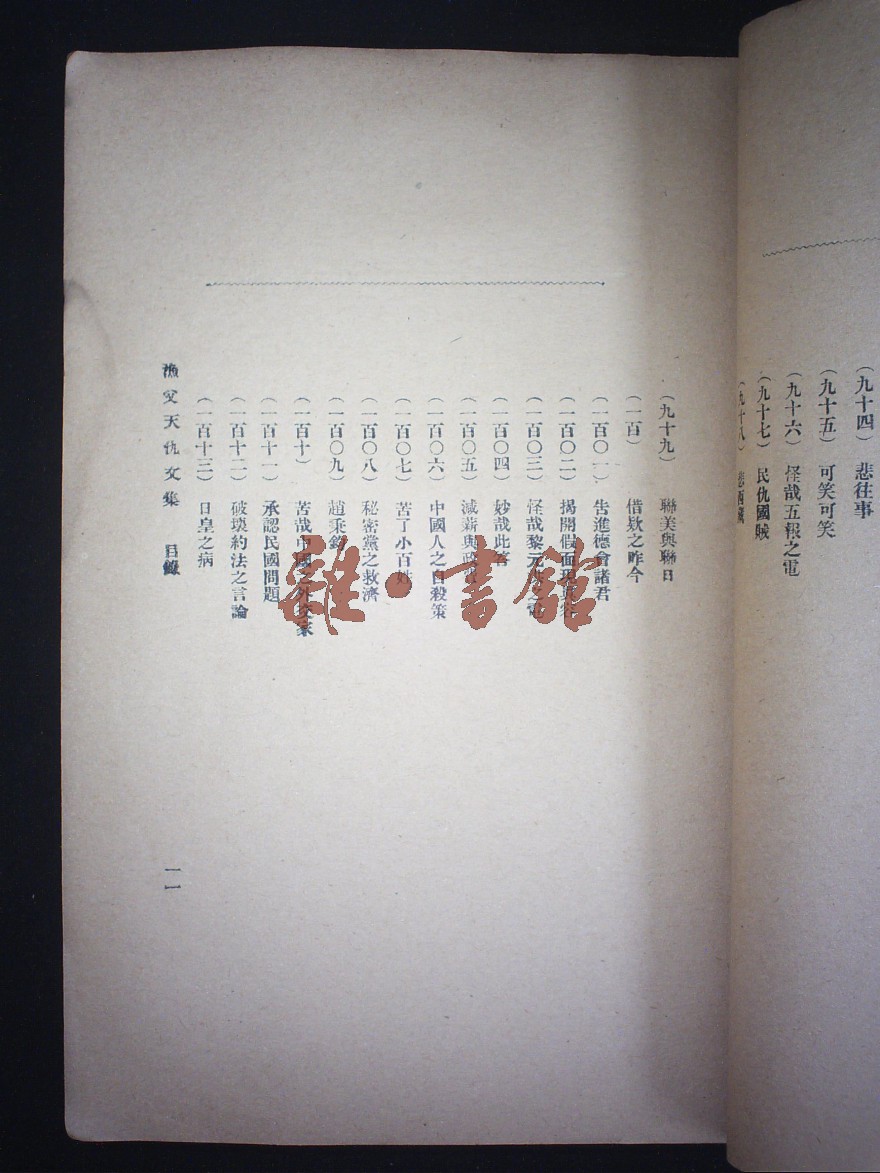 （九十四）　悲往事
（九十五）　可笑可笑
（九十六）　怪哉五報之電
（九十七）　民仇國賊
（九十八）　悲西藏
（九十九）　聯美與聯日
（一百）　借欵之昨今
（一百〇一）　告進德會諸君
（一百〇二）　揭開假面現真容
（一百〇三）　怪哉黎元洪之電
（一百〇四）　妙哉此答
（一百〇五）　減薪與政
（一百〇六）　中國人之自殺策
（一百〇七）　苦了小百姓
（一百〇八）　秘密黨之救濟
（一百〇九）　趙秉鈞
（一百十）　苦哉中國之外交家
（一百十一）　承認民國問題
（一百十二）　破壞約法之言論
（一百十三）　日皇之病
漁父天仇文集　目錄
一一
雜·書館